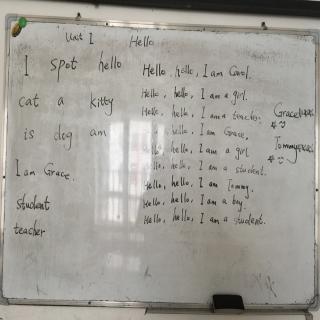 Unit 1 Hello
I spot hello
cat a kitty
is dog am
I am Grace.
student
teacher
Hello, hello, I am Carol.
Hello, hello, I am a girl.
Hello, hello, I am a teacher.
hello, I am Grace.
hello, I am a girl
hello, I am a student.
Hello, hello, I am Tommy.
Hello, hello, I am a boy.
Hello, hello, I am a student.
Grace
Tommy